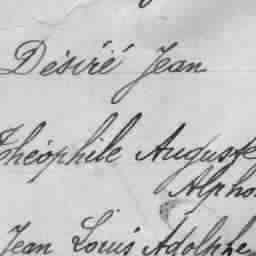 Désiré Jean
Théophile Auguste
Alpho
Jean Louis Adolphe